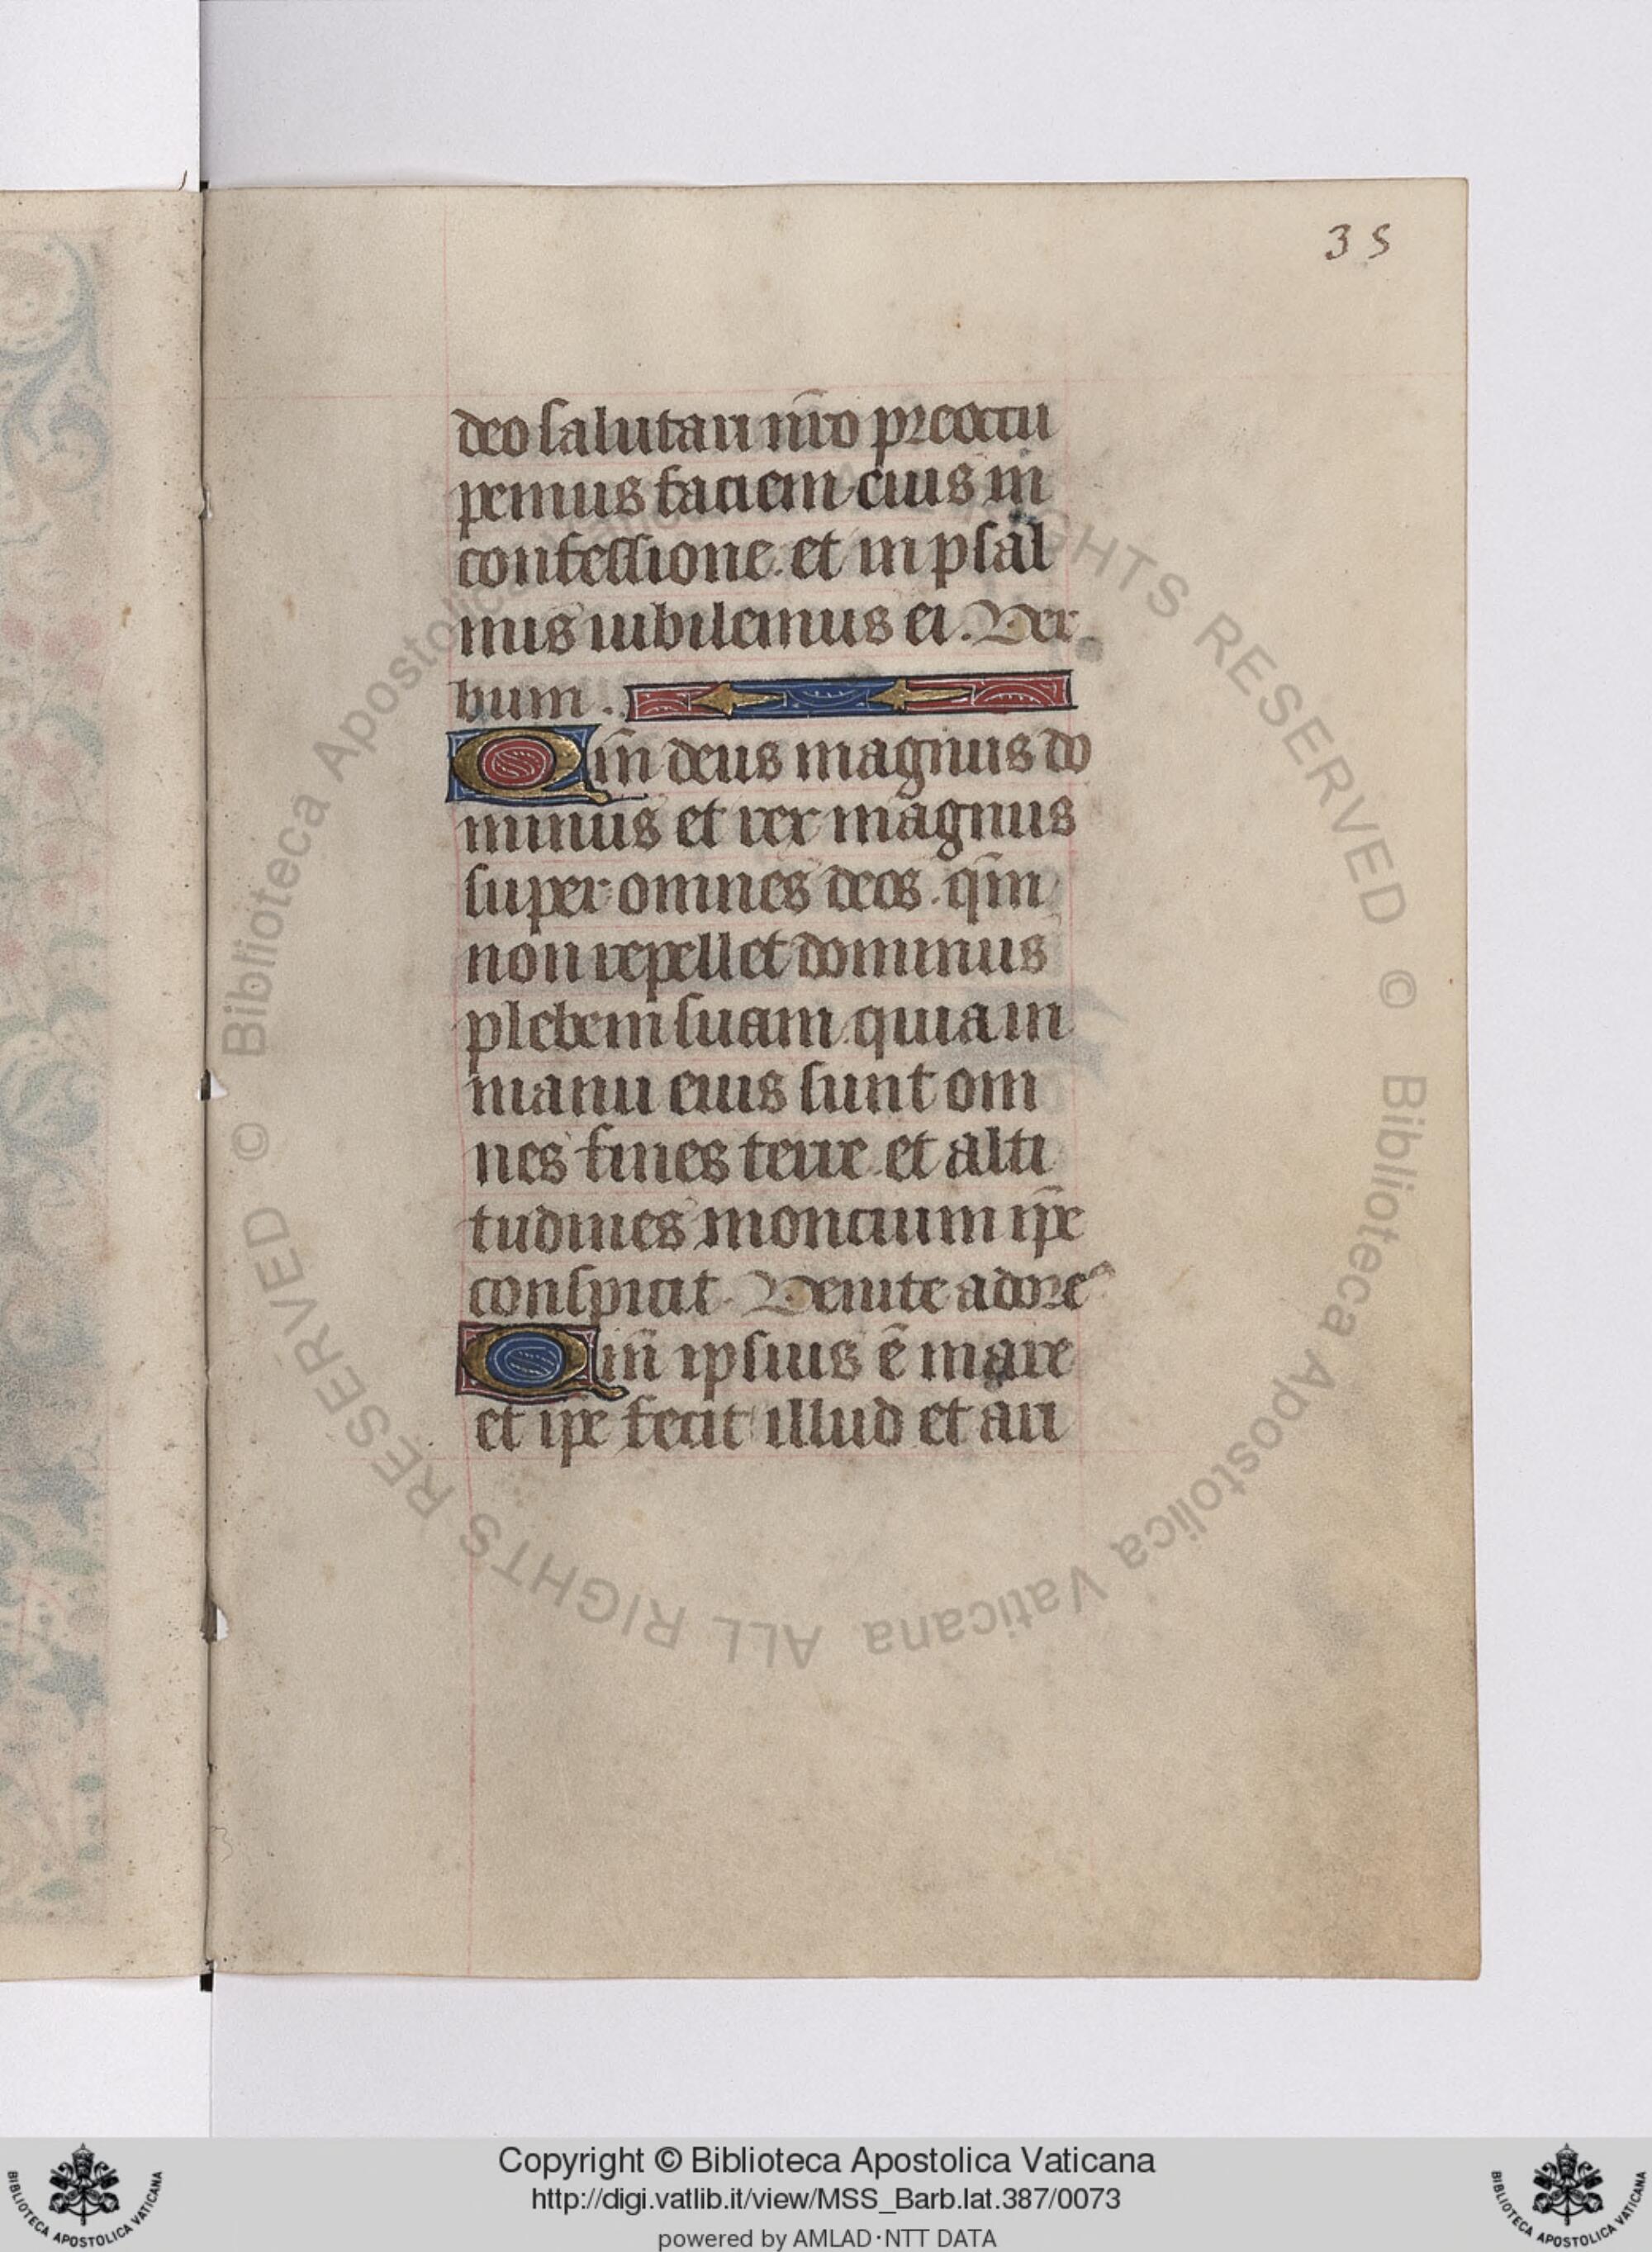 35
deo salutari nr̄o preoccu
pemus faciem eius in
confessione et in psal
mis iubilemus ei. Ver
bum.
Qm̄ deus magnus do
minus et rex magnus
super omnes deos. qm̄
non repellet dominus
plebem suam quia in
manu eius sunt om
nes fines terre et alti
tudines moncium ip̄e
conspicit. Venite adore
Qm̄ ipsius ē mare
et ip̄e fecit illud et ari
© Biblioteca Apostolica Vaticana ALL RIGHTS RESERVED © Biblioteca Apostolica Vaticana ALL RIGHTS RESERVED
Copyright © Biblioteca Apostolica Vaticana
http://digi.vatlib.it/view/MSS_Barb.lat.387/0073
powered by AMLAD·NTT DATA
BIBLIOTECA APOSTOLICA VATICANA
BIBLIOTECA APOSTOLICA VATICANA